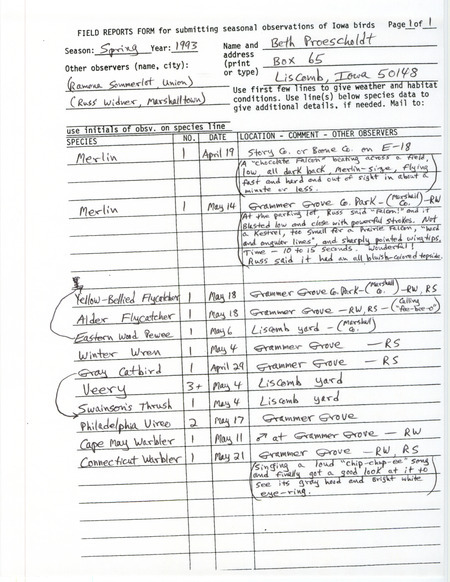 FIELD REPORTS FORM for submitting seasonal observations of Iowa birds Page 1 of 1
Season: Spring Year: 1993 Name and address (print or type) Beth Proescholdt
Box 65
Liscomb, Iowa 50148
Other observers (name, city):
(Ramona Sommerlot, Union)
(Russ Widner, Marshalltown)
Use first few lines to give weather and habitat
conditions. Use line(s) below species data to
give additional details, if needed. Mail to:
use initials of obsv. on species line
SPECIES NO. DATE LOCATION - COMMENT - OTHER OBSERVERS
Merlin 1 April 19 Story Co. or Boone Co. on E-18
(A "chocolate falcon" beating across a field,
low, all dark back, Merlin-size, flying
fast and hard and out of sight in about a
minute or less.
Merlin 1 May 14 Grammer Grove Co. Park - (Marshall Co.) - RW
At the parking lot Russ said "Falcon!" and it
blasted low and close with powerful strokes. Not
a Kestrel, too small for a Prairie Falcon, "hard
and angular lines", and sharply pointed wingtips.
Time - 10 to 15 seconds. Wonderful!
Russ said it had an all bluish-colored topside.
Yellow-Bellied Flycatcher 1 May 18 Grammer Grove Co. Park - (Marshall Co.) - RW, RS
Alder Flycatcher 1 May 18 Grammer Grove - RW, RS - (Calling "fee-bee-o")
Eastern Wood Pewee 1 May 6 Liscomb yard - (Marshall Co.)
Winter Wren 1 May 4 Grammer Grove - RS
Gray Catbird 1 April 29 Grammer Grove - RS
Veery 3+ May 4 Liscomb yard
Swainson's Thrush 1 May 4 Liscomb yard
Philadelphia Vireo 2 May 17 Grammer Grove
Cape May Warbler 1 May 11 ♂ at Grammer Grove - RW
Connecticut Warbler 1 May 21 Grammer Grove - RW, RS
(Singing a loud "chip-chup-ee" song
and finally got a good look at it to
see its gray hood and bright white
eye-ring.